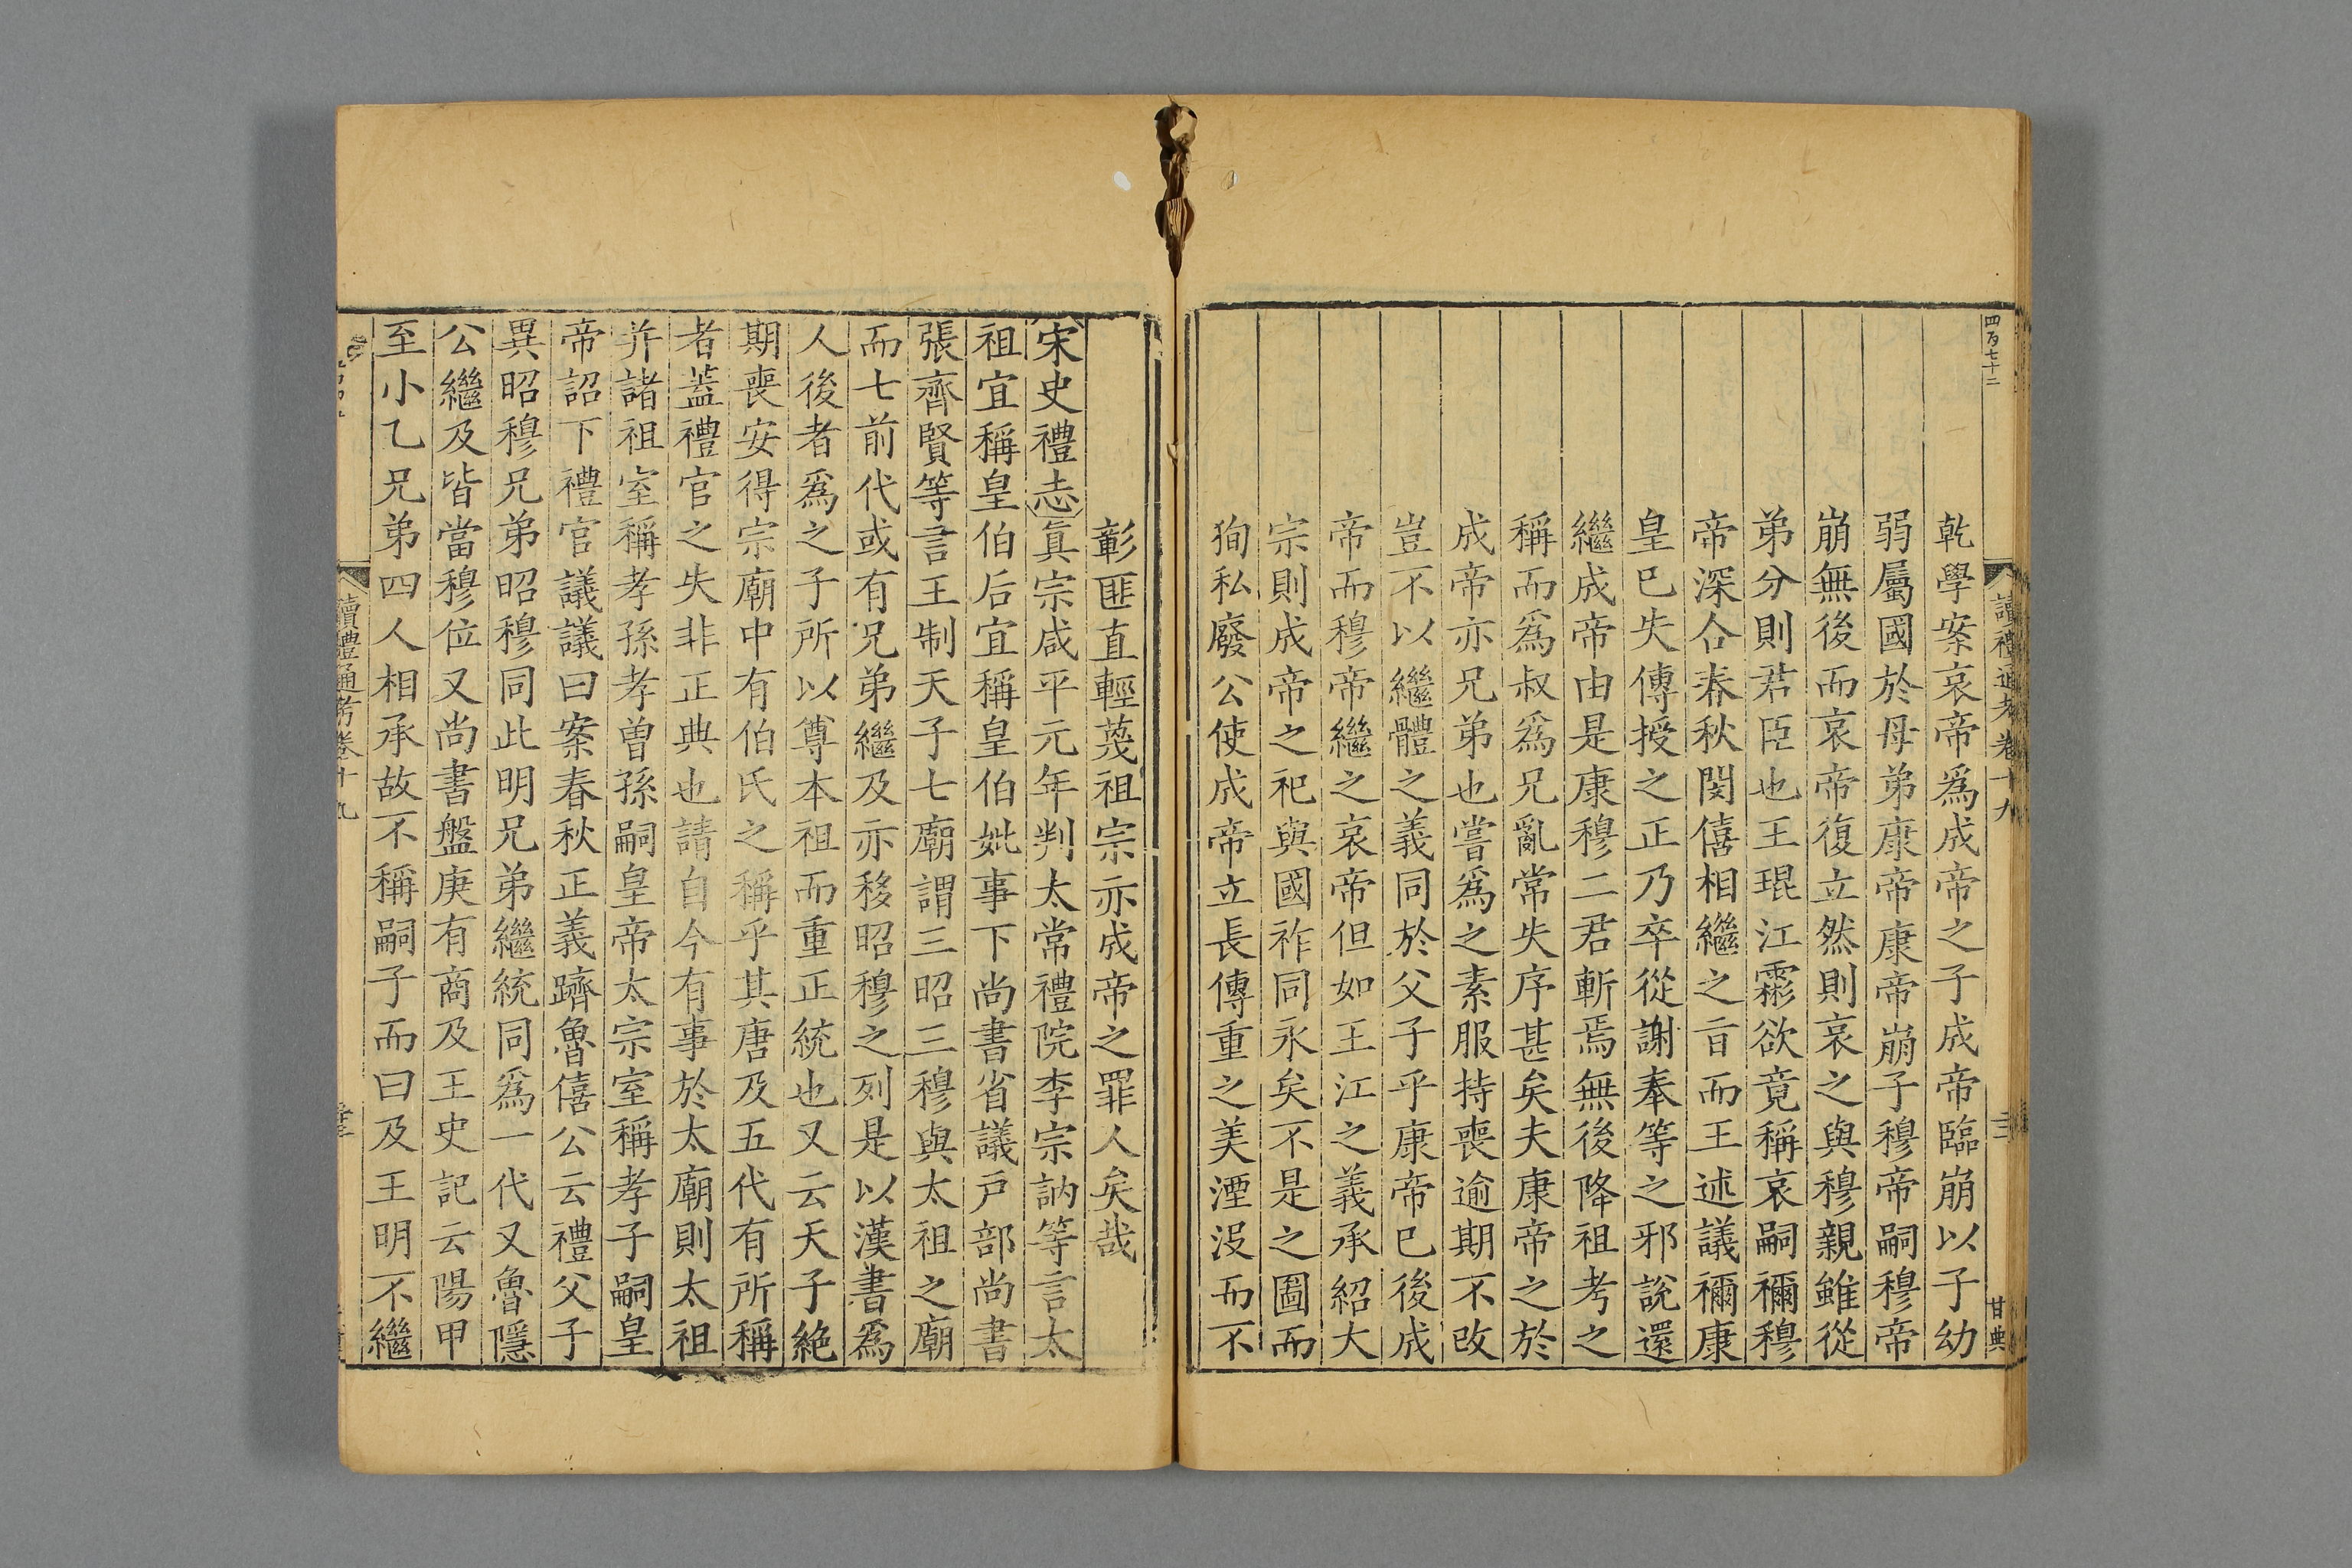 四百七十二
讀禮通考卷十九
三二
甘典
乾學案哀帝爲成帝之子成帝臨崩以子幼
弱屬國於母弟康帝康帝崩子穆帝嗣穆帝
崩無後而哀帝復立然則哀之與穆親雖從
弟分則君臣也王琨江霦欲竟稱哀嗣禰穆
帝深合春秋閔僖相繼之㫖而王述議禰康
皇已失傳授之正乃卒從謝奉等之邪說還
繼成帝由是康穆二君斬焉無後降祖考之
稱而爲叔爲兄亂常失序甚矣夫康帝之於
成帝亦兄弟也嘗爲之素服持喪逾期不改
豈不以繼體之義同於父子乎康帝已後成
帝而穆帝繼之哀帝但如王江之義承紹大
宗則成帝之祀與國祚同永矣不是之圖而
狥私廢公使成帝立長傳重之美湮沒而不
彰匪直輕蔑祖宗亦成帝之罪人矣哉
宋史禮志眞宗咸平元年判太常禮院李宗訥等言太
祖宜稱皇伯后宜稱皇伯妣事下尚書省議戸部尚書
張齊賢等言王制天子七廟謂三昭三穆與太祖之廟
而七前代或有兄弟繼及亦移昭穆之列是以漢書爲
人後者爲之子所以尊本祖而重正統也又云天子絶
期喪安得宗廟中有伯氏之稱乎其唐及五代有所稱
者蓋禮官之失非正典也請自今有事於太廟則太祖
并諸祖室稱孝孫孝曾孫嗣皇帝太宗室稱孝子嗣皇
帝詔下禮官議議曰案春秋正義躋魯僖公云禮父子
異昭穆兄弟昭穆同此明兄弟繼統同爲一代又魯隱
公繼及皆當穆位又尚書盤庚有商及王史記云陽甲
至小乙兄弟四人相承故不稱嗣子而曰及王明不繼
讀禮通考卷十九